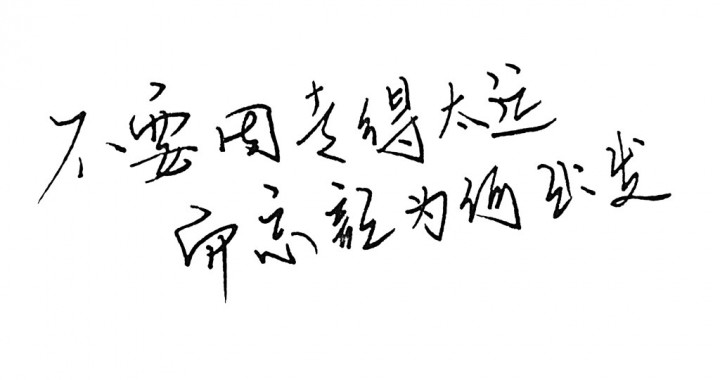 不要因走得太远
而忘记为何出发